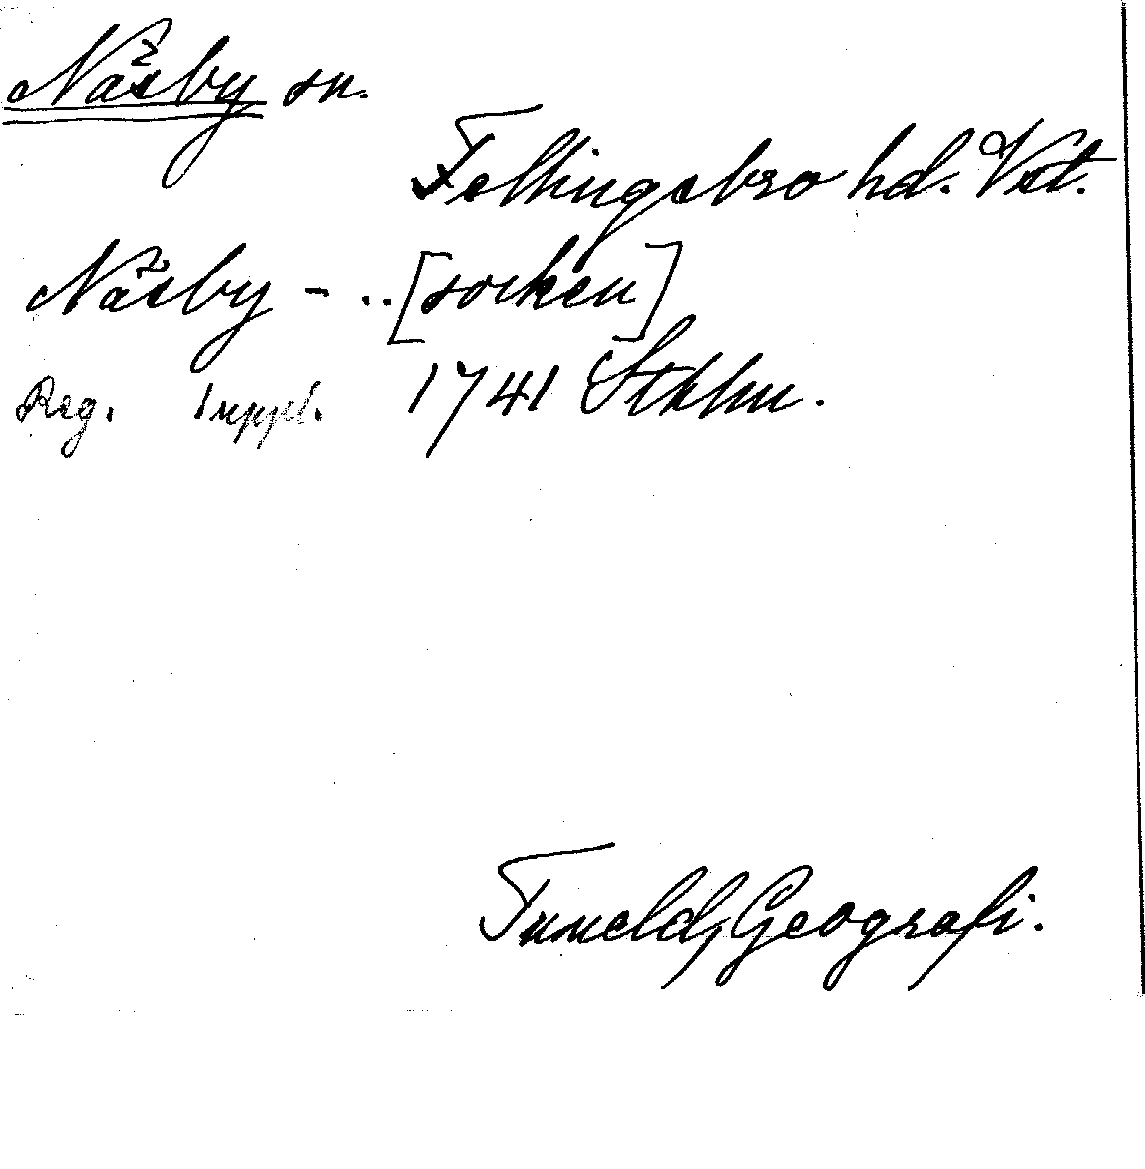 Näsby sn.
Fellingsbro hd. Vst.
Näsby - .. [socken]
Reg. suppl. 1741 Sthlm.
Tuneld, Geografi.